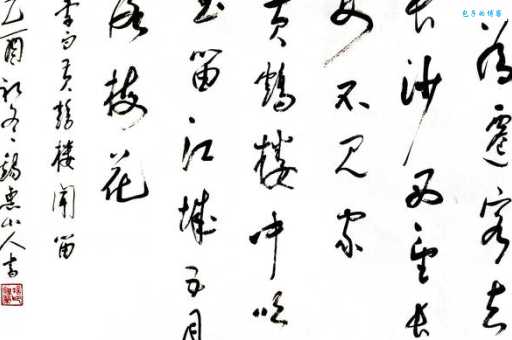 包子的博客
為遷客去
長沙西望長
安不見家
黃鶴樓中吹
玉笛江城五月
落梅花
李白黃鶴樓聞笛
乙酉初冬錫惠山人書